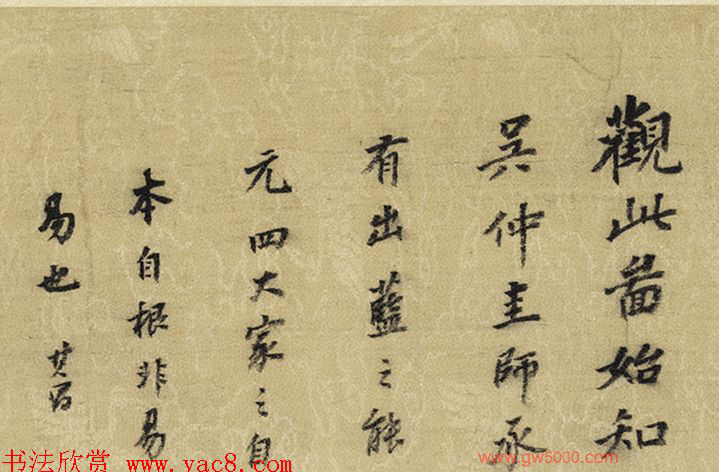 觀此啚始知
吴仲圭師承
有出藍之能
元四大家之自
本自根非易
易也 其昌
书法欣赏 www.yac8.com
www.gw5000.com